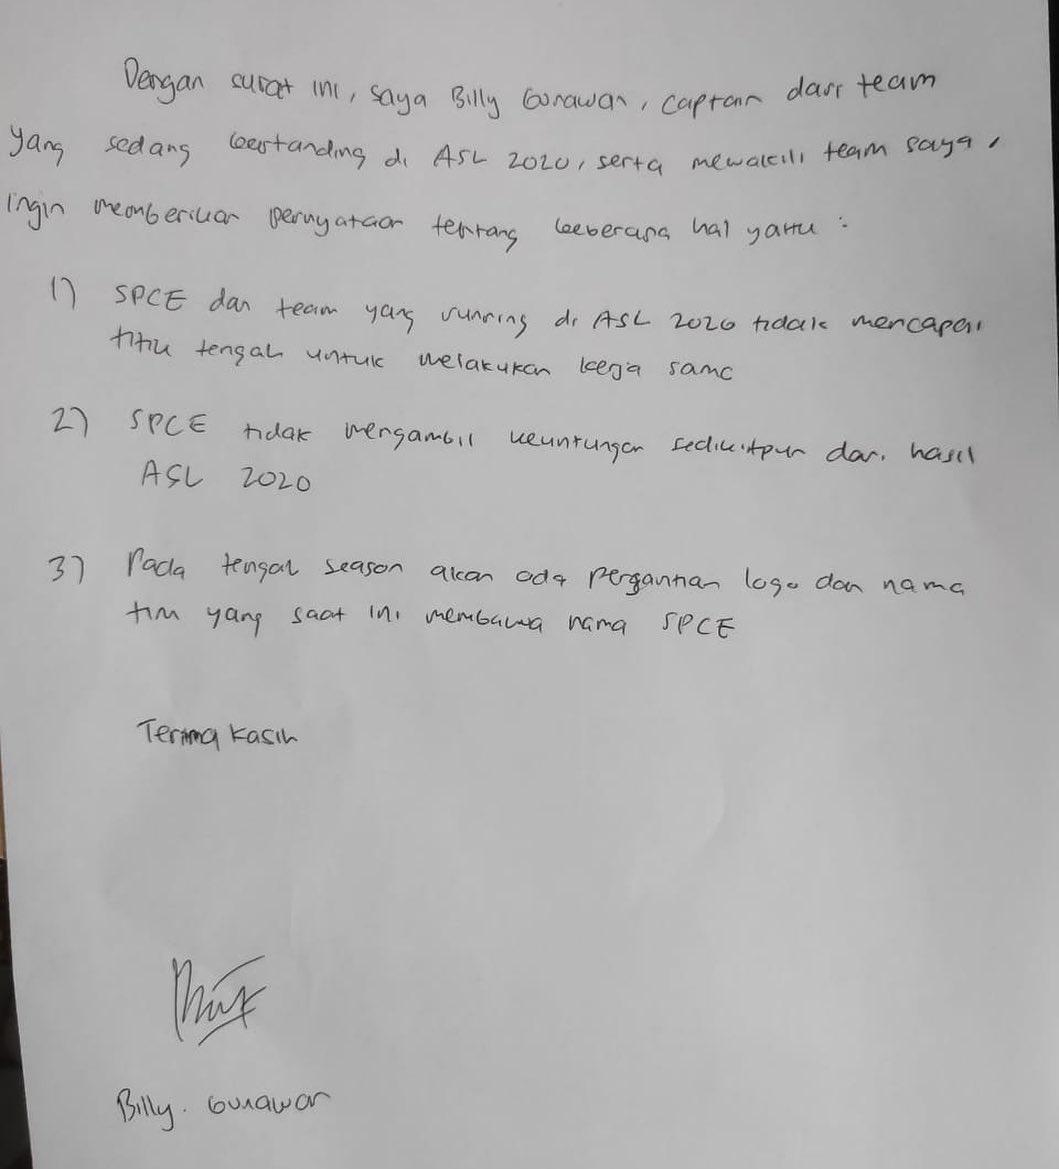 Dengan surat ini, saya Billy Gunawan, captain dari team
yang sedang bertanding di ASL 2020, serta mewakili team saya,
ingin memberikan pernyataan tentang beberapa hal yaitu :
1) SPCE dan team yang running di ASL 2020 tidak mencapai
titik tengah untuk melakukan kerja sama
2) SPCE tidak mengambil keuntungan sedikitpun dari hasil
ASL 2020
3) Pada tengah season akan ada pergantian logo dan nama
tim yang saat ini membawa nama SPCE
Terima kasih
Billy. Gunawan